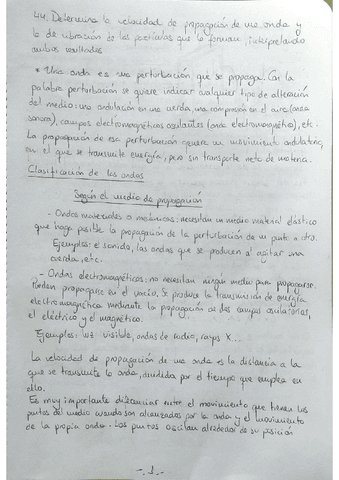 44. Determina la velocidad de propagación de una onda y
la de vibración de las partículas que la forman, interpretando
ambos resultados
* Una onda es una perturbación que se propaga. Con la
palabra perturbación se quiere indicar cualquier tipo de alteración
del medio: una ondulación en una cuerda, una compresión en el aire (onda
sonora), campos electromagnéticos oscilantes (onda electromagnética), etc.
La propagación de esa perturbación genera un movimiento ondulatorio,
en el que se transmite energía, pero sin transporte neto de materia.
Clasificación de las ondas
Según el medio de propagación
- Ondas materiales o mecánicas: necesitan un medio material elástico
que haga posible la propagación de la perturbación de un punto a otro.
Ejemplos: el sonido, las ondas que se producen al agitar una
cuerda, etc.
- Ondas electromagnéticas: no necesitan ningún medio para propagarse.
Pueden propagarse en el vacío. Se produce la transmisión de energía
electromagnética mediante la propagación de dos campos oscilatorios,
el eléctrico y el magnético.
Ejemplos: luz visible, ondas de radio, rayos X...
La velocidad de propagación de una onda es la distancia a la
que se transmite la onda, dividida por el tiempo que emplea en
ello.
Es muy importante diferenciar entre el movimiento que tienen los
puntos del medio cuando son alcanzados por la onda y el movimiento
de la propia onda. Los puntos oscilan alrededor de su posición
- 1 -